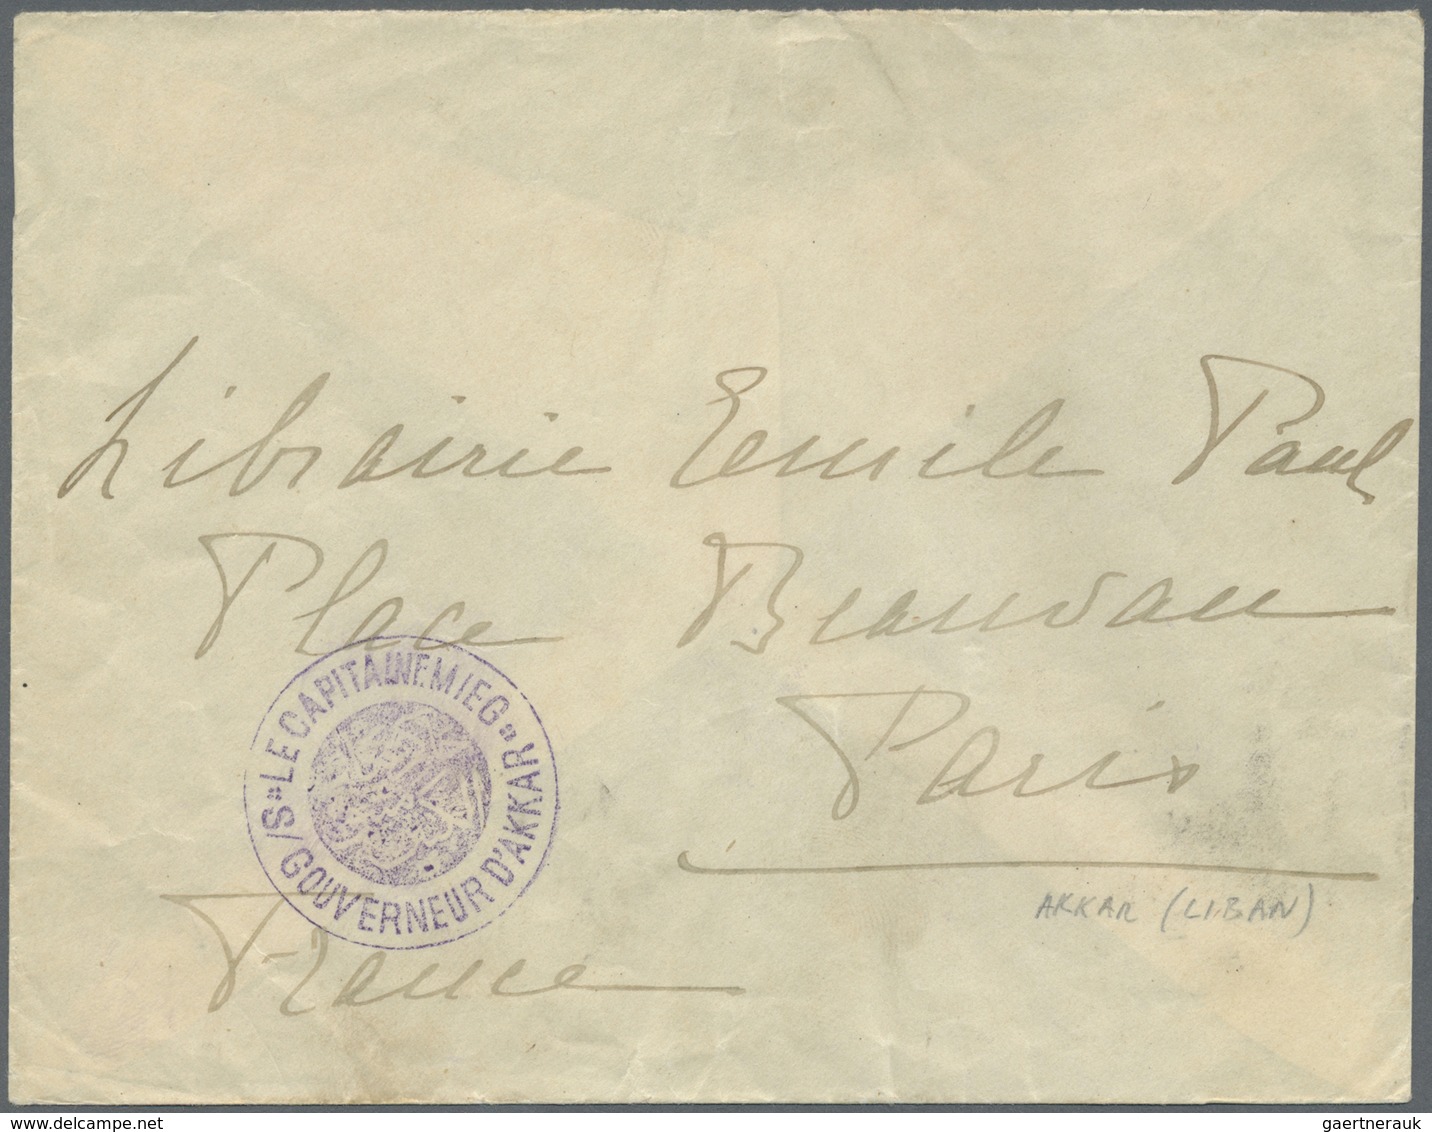 Librairie Emile Paul
Place Beauvau
Paris
"LE CAPITAINE MIEG"
S/GOUVERNEUR D'AKKAR
AKKAR (LIBAN)
France
delcampe.net
gaertnerauk